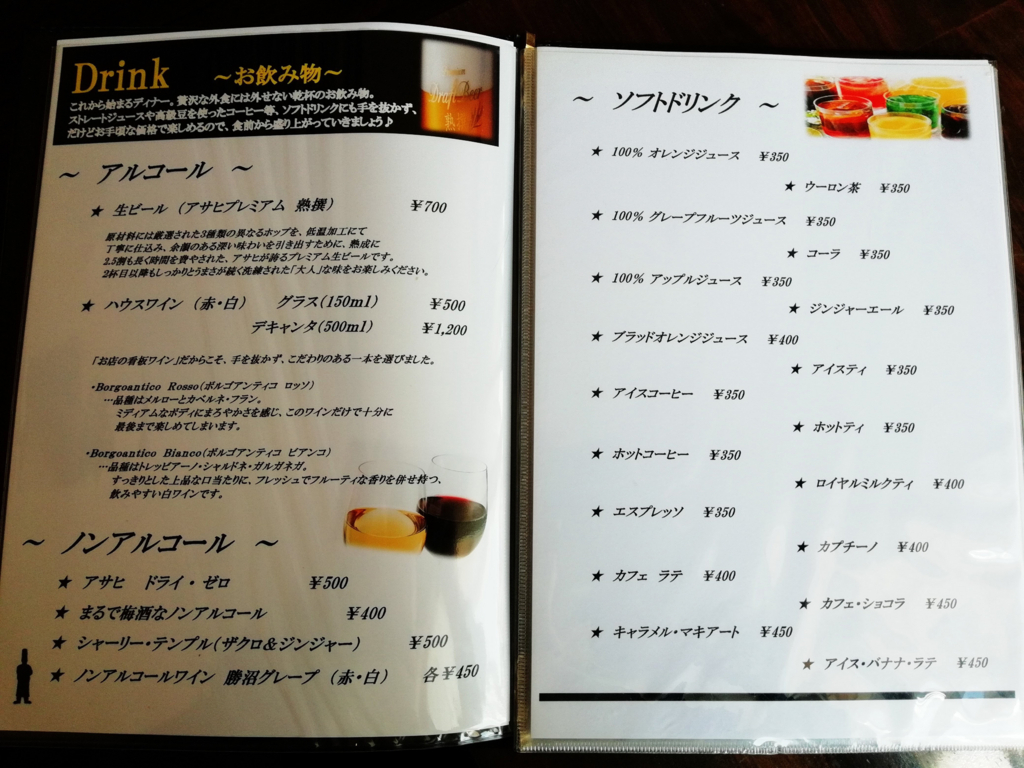 Drink ～お飲み物～
これから始まるディナー。贅沢な外食には外せない乾杯のお飲み物。
ストレートジュースや高級豆を使ったコーヒー等、ソフトドリンクにも手を抜かず、
だけどお手頃な価格で楽しめるので、食前から盛り上がっていきましょう♪
Draft Beer
～ アルコール ～
★ 生ビール （アサヒプレミアム 熟撰） ￥700
原材料には厳選された3種類の異なるホップを、低温加工にて
丁寧に仕込み、余韻のある深い味わいを引き出すために、熟成に
2.5割も長く時間を費やされた、アサヒが誇るプレミアム生ビールです。
2杯目以降もしっかりとうまさが続く洗練された「大人」な味をお楽しみください。
★ ハウスワイン （赤・白） グラス（150ml） ￥500
デキャンタ（500ml） ￥1,200
「お店の看板ワイン」だからこそ、手を抜かず、こだわりのある一本を選びました。
・Borgoantico Rosso（ボルゴアンティコ ロッソ）
…品種はメルローとカベルネ・フラン。
ミディアムなボディにまろやかさを感じ、このワインだけで十分に
最後まで楽しめてしまいます。
・Borgoantico Bianco（ボルゴアンティコ ビアンコ）
…品種はトレッビアーノ・シャルドネ・ガルガネガ。
すっきりとした上品な口当たりに、フレッシュでフルーティな香りを併せ持つ、
飲みやすい白ワインです。
～ ノンアルコール ～
★ アサヒ ドライ・ゼロ ￥500
★ まるで梅酒なノンアルコール ￥400
★ シャーリー・テンプル（ザクロ＆ジンジャー） ￥500
★ ノンアルコールワイン 勝沼グレープ （赤・白） 各￥450
～ ソフトドリンク ～
★ 100% オレンジジュース ￥350
★ ウーロン茶 ￥350
★ 100% グレープフルーツジュース ￥350
★ コーラ ￥350
★ 100% アップルジュース ￥350
★ ジンジャーエール ￥350
★ ブラッドオレンジジュース ￥400
★ アイスティ ￥350
★ アイスコーヒー ￥350
★ ホットティ ￥350
★ ホットコーヒー ￥350
★ ロイヤルミルクティ ￥400
★ エスプレッソ ￥350
★ カプチーノ ￥400
★ カフェ ラテ ￥400
★ カフェ・ショコラ ￥450
★ キャラメル・マキアート ￥450
★ アイス・バナナ・ラテ ￥450